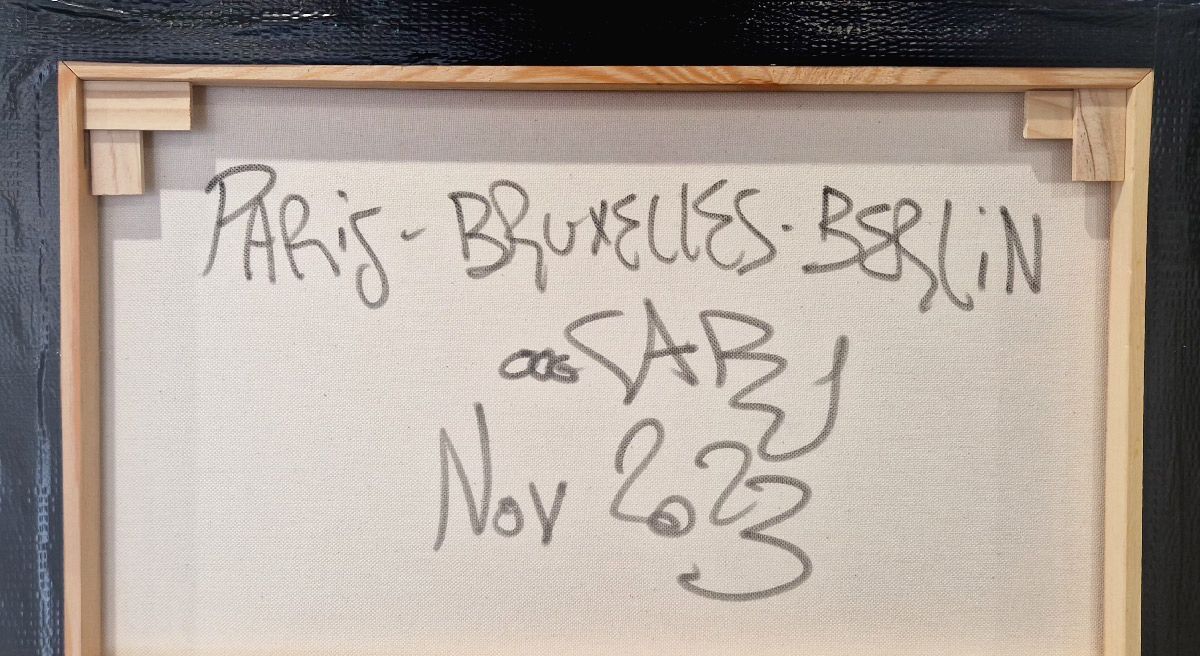 PARiS - BRUXELLES - BERLiN
Nov 2023